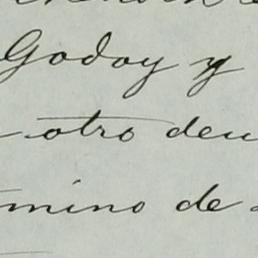 Godoy y
otro deu
mino de